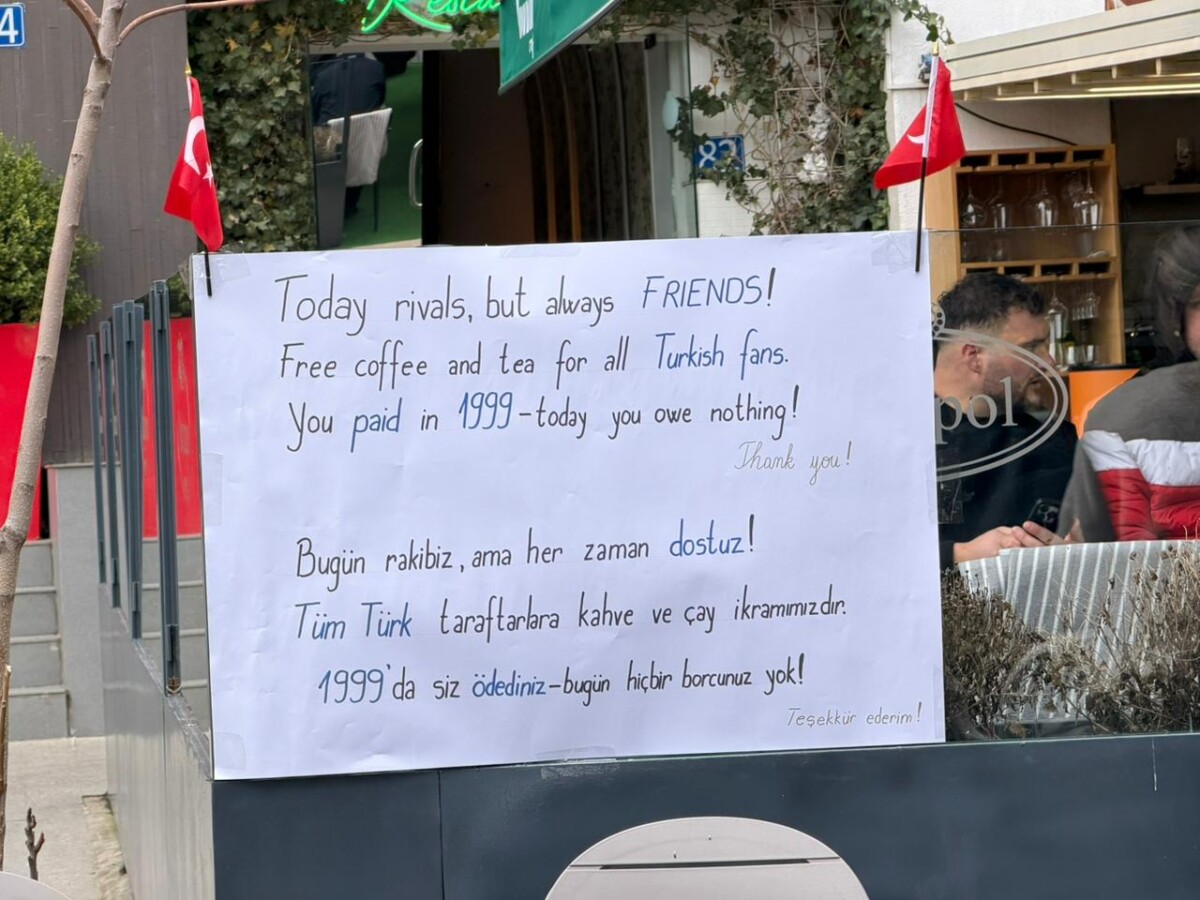 4
Today rivals, but always FRIENDS!
Free coffee and tea for all Turkish fans.
You paid in 1999 - today you owe nothing!
Thank you!
Bugün rakibiz, ama her zaman dostuz!
Tüm Türk taraftarlara kahve ve çay ikramımızdır.
1999'da siz ödediniz - bugün hiçbir borcunuz yok!
Teşekkür ederim!
83
pol